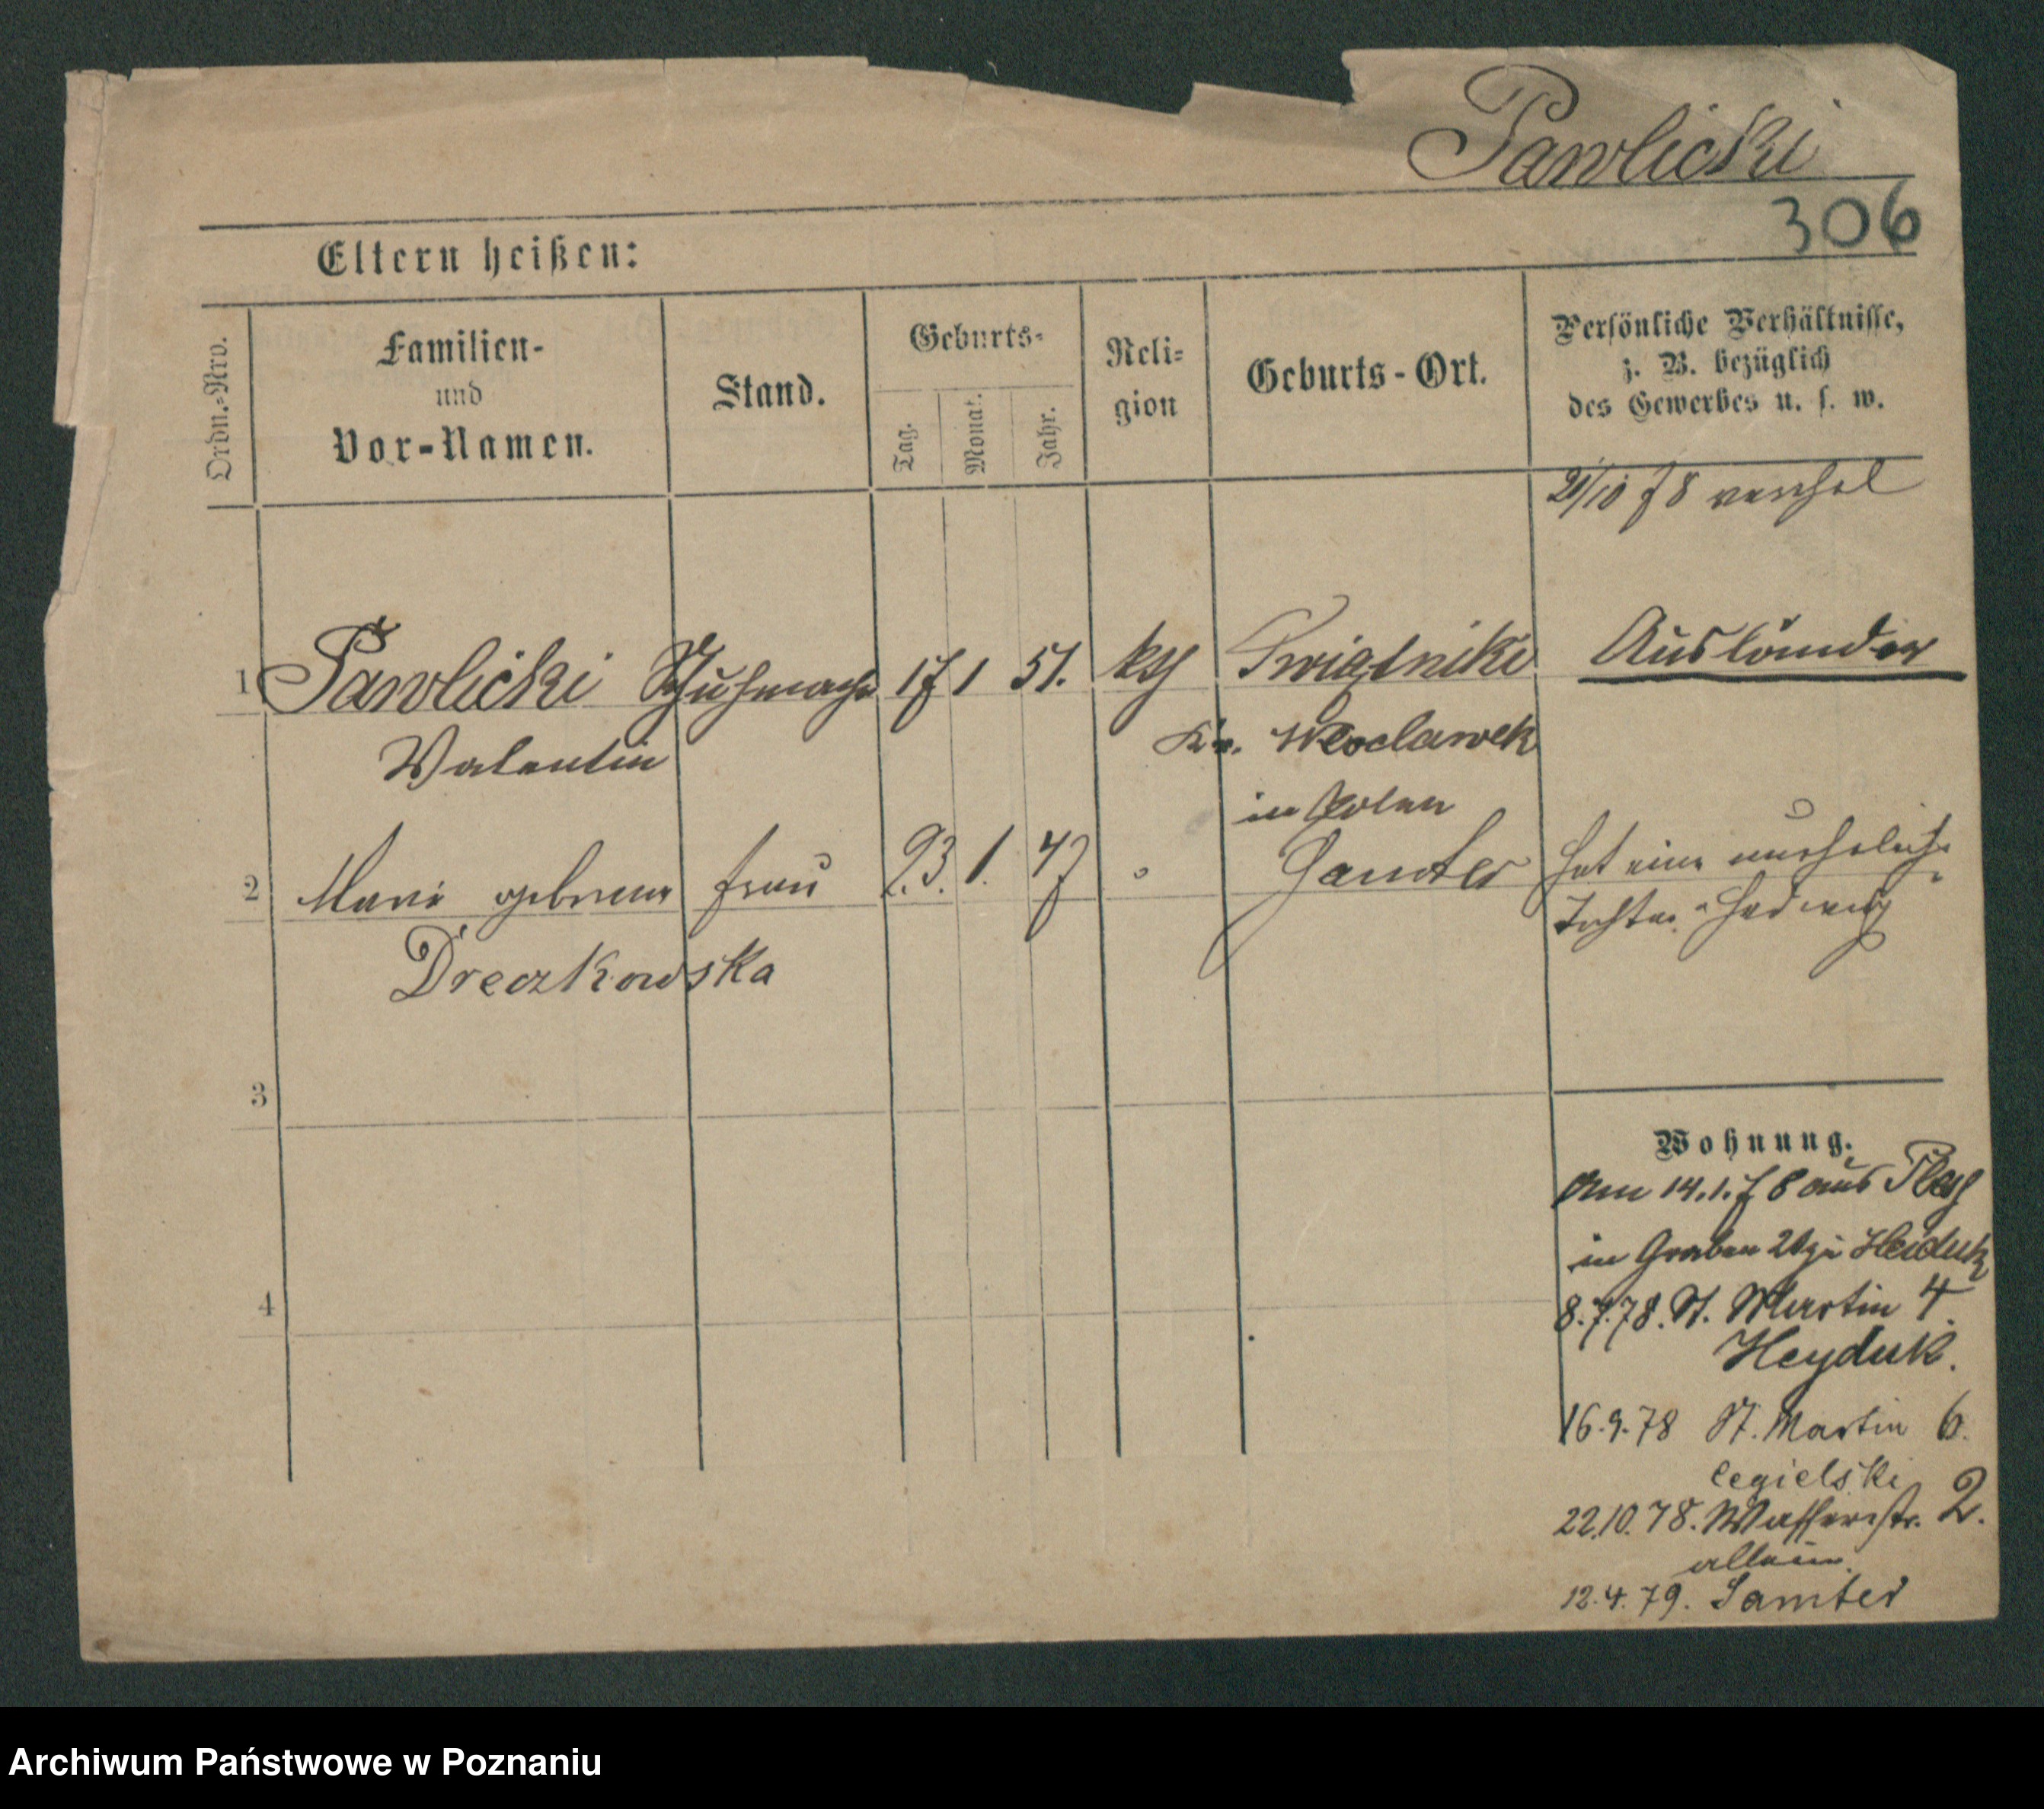 Pawlicki
306
Eltern heißen:
Ordn.-Nro.
Familien-
und
Vor-Namen.
Stand.
Geburts-
Tag.
Monat.
Jahr.
Reli-
gion
Geburts-Ort.
Persönliche Verhältnisse,
z. B. bezüglich
des Gewerbes u. s. w.
21/10 78
1 Pawlicki Schuhmacher 17 1 51. Swiątniki Ausländer
Walentin Kr. Wloclawek
in Polen
2 Marie geborene Frau 23. 1. 47 Samter hat eine uneheliche
Dreczkowska Tochter Hedwig
3
4
Wohnung.
Am 14.1.78 aus
in Graben Heiduk
8.7.78. St. Martin 4.
Heyduk.
16.9.78 St. Martin 6.
Cegielski
22.10.78. Wasserstr. 2.
allein.
12.4.79. Samter
Archiwum Państwowe w Poznaniu